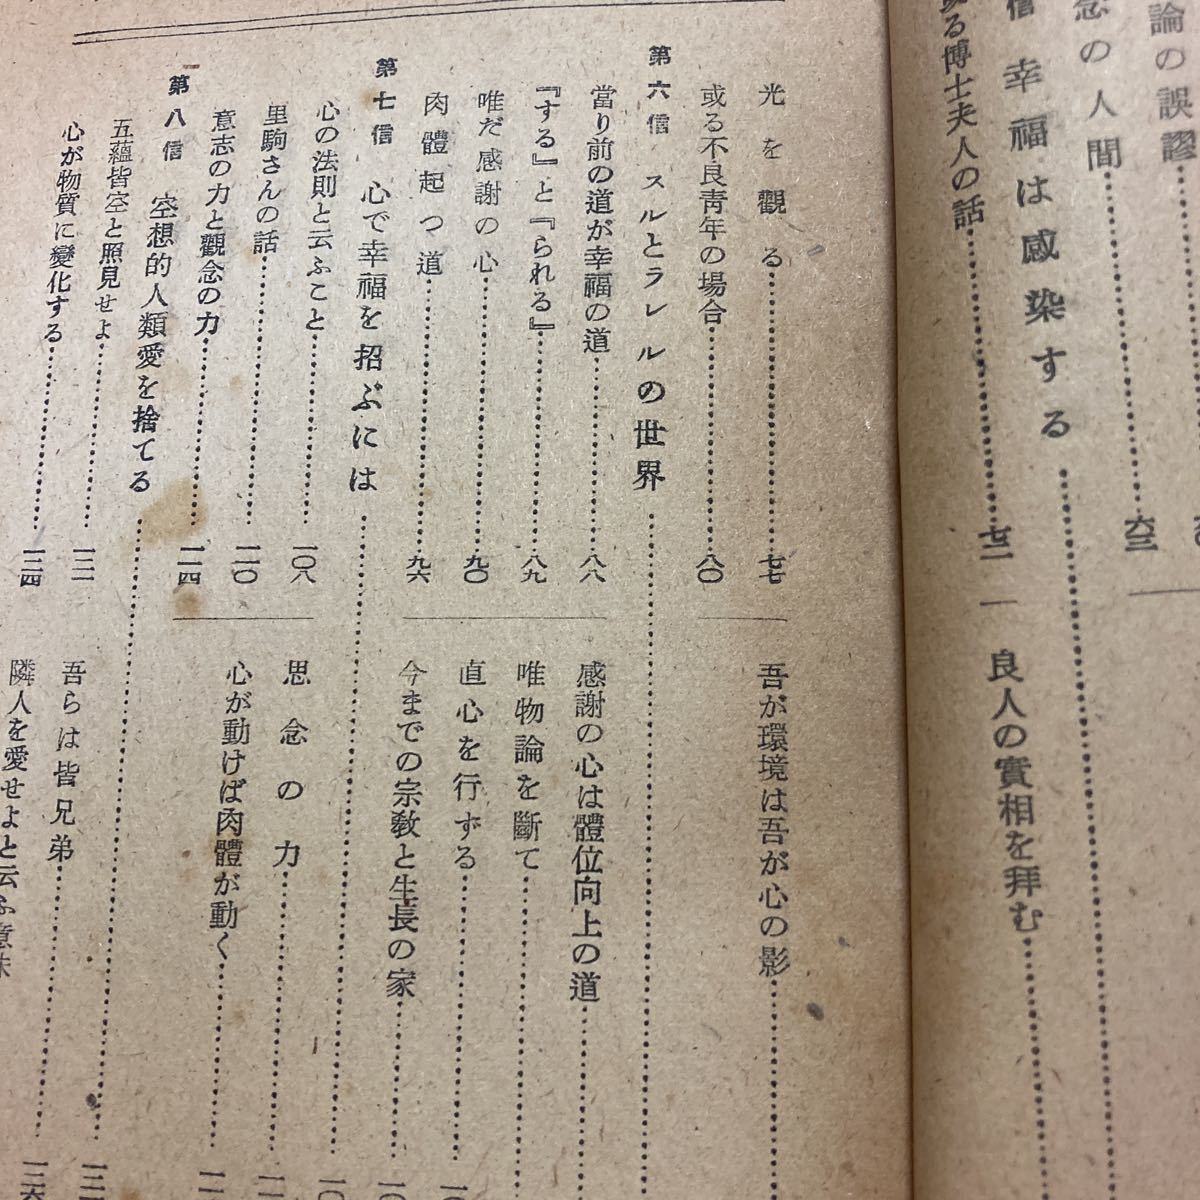 論の誤謬
六三
念の人間
信 幸福は感染する
或る博士夫人の話 七二
良人の實相を拜む
光を觀る 七七
吾が環境は吾が心の影
或る不良靑年の場合 八〇
第六信 スルとラレルの世界
當り前の道が幸福の道 八八
感謝の心は體位向上の道
『する』と『られる』 八九
唯物論を斷て
唯だ感謝の心 九〇
直心を行ずる
肉體起つ道 九六
今までの宗敎と生長の家
第七信 心で幸福を招ぶには
心の法則と云ふこと 一〇八
思念の力
里駒さんの話 一一〇
心が動けば肉體が動く
意志の力と觀念の力 一一四
第八信 空想的人類愛を捨てる
五蘊皆空と照見せよ 一二一
吾らは皆兄弟
心が物質に變化する 一二四
隣人を愛せよと云ふ意味